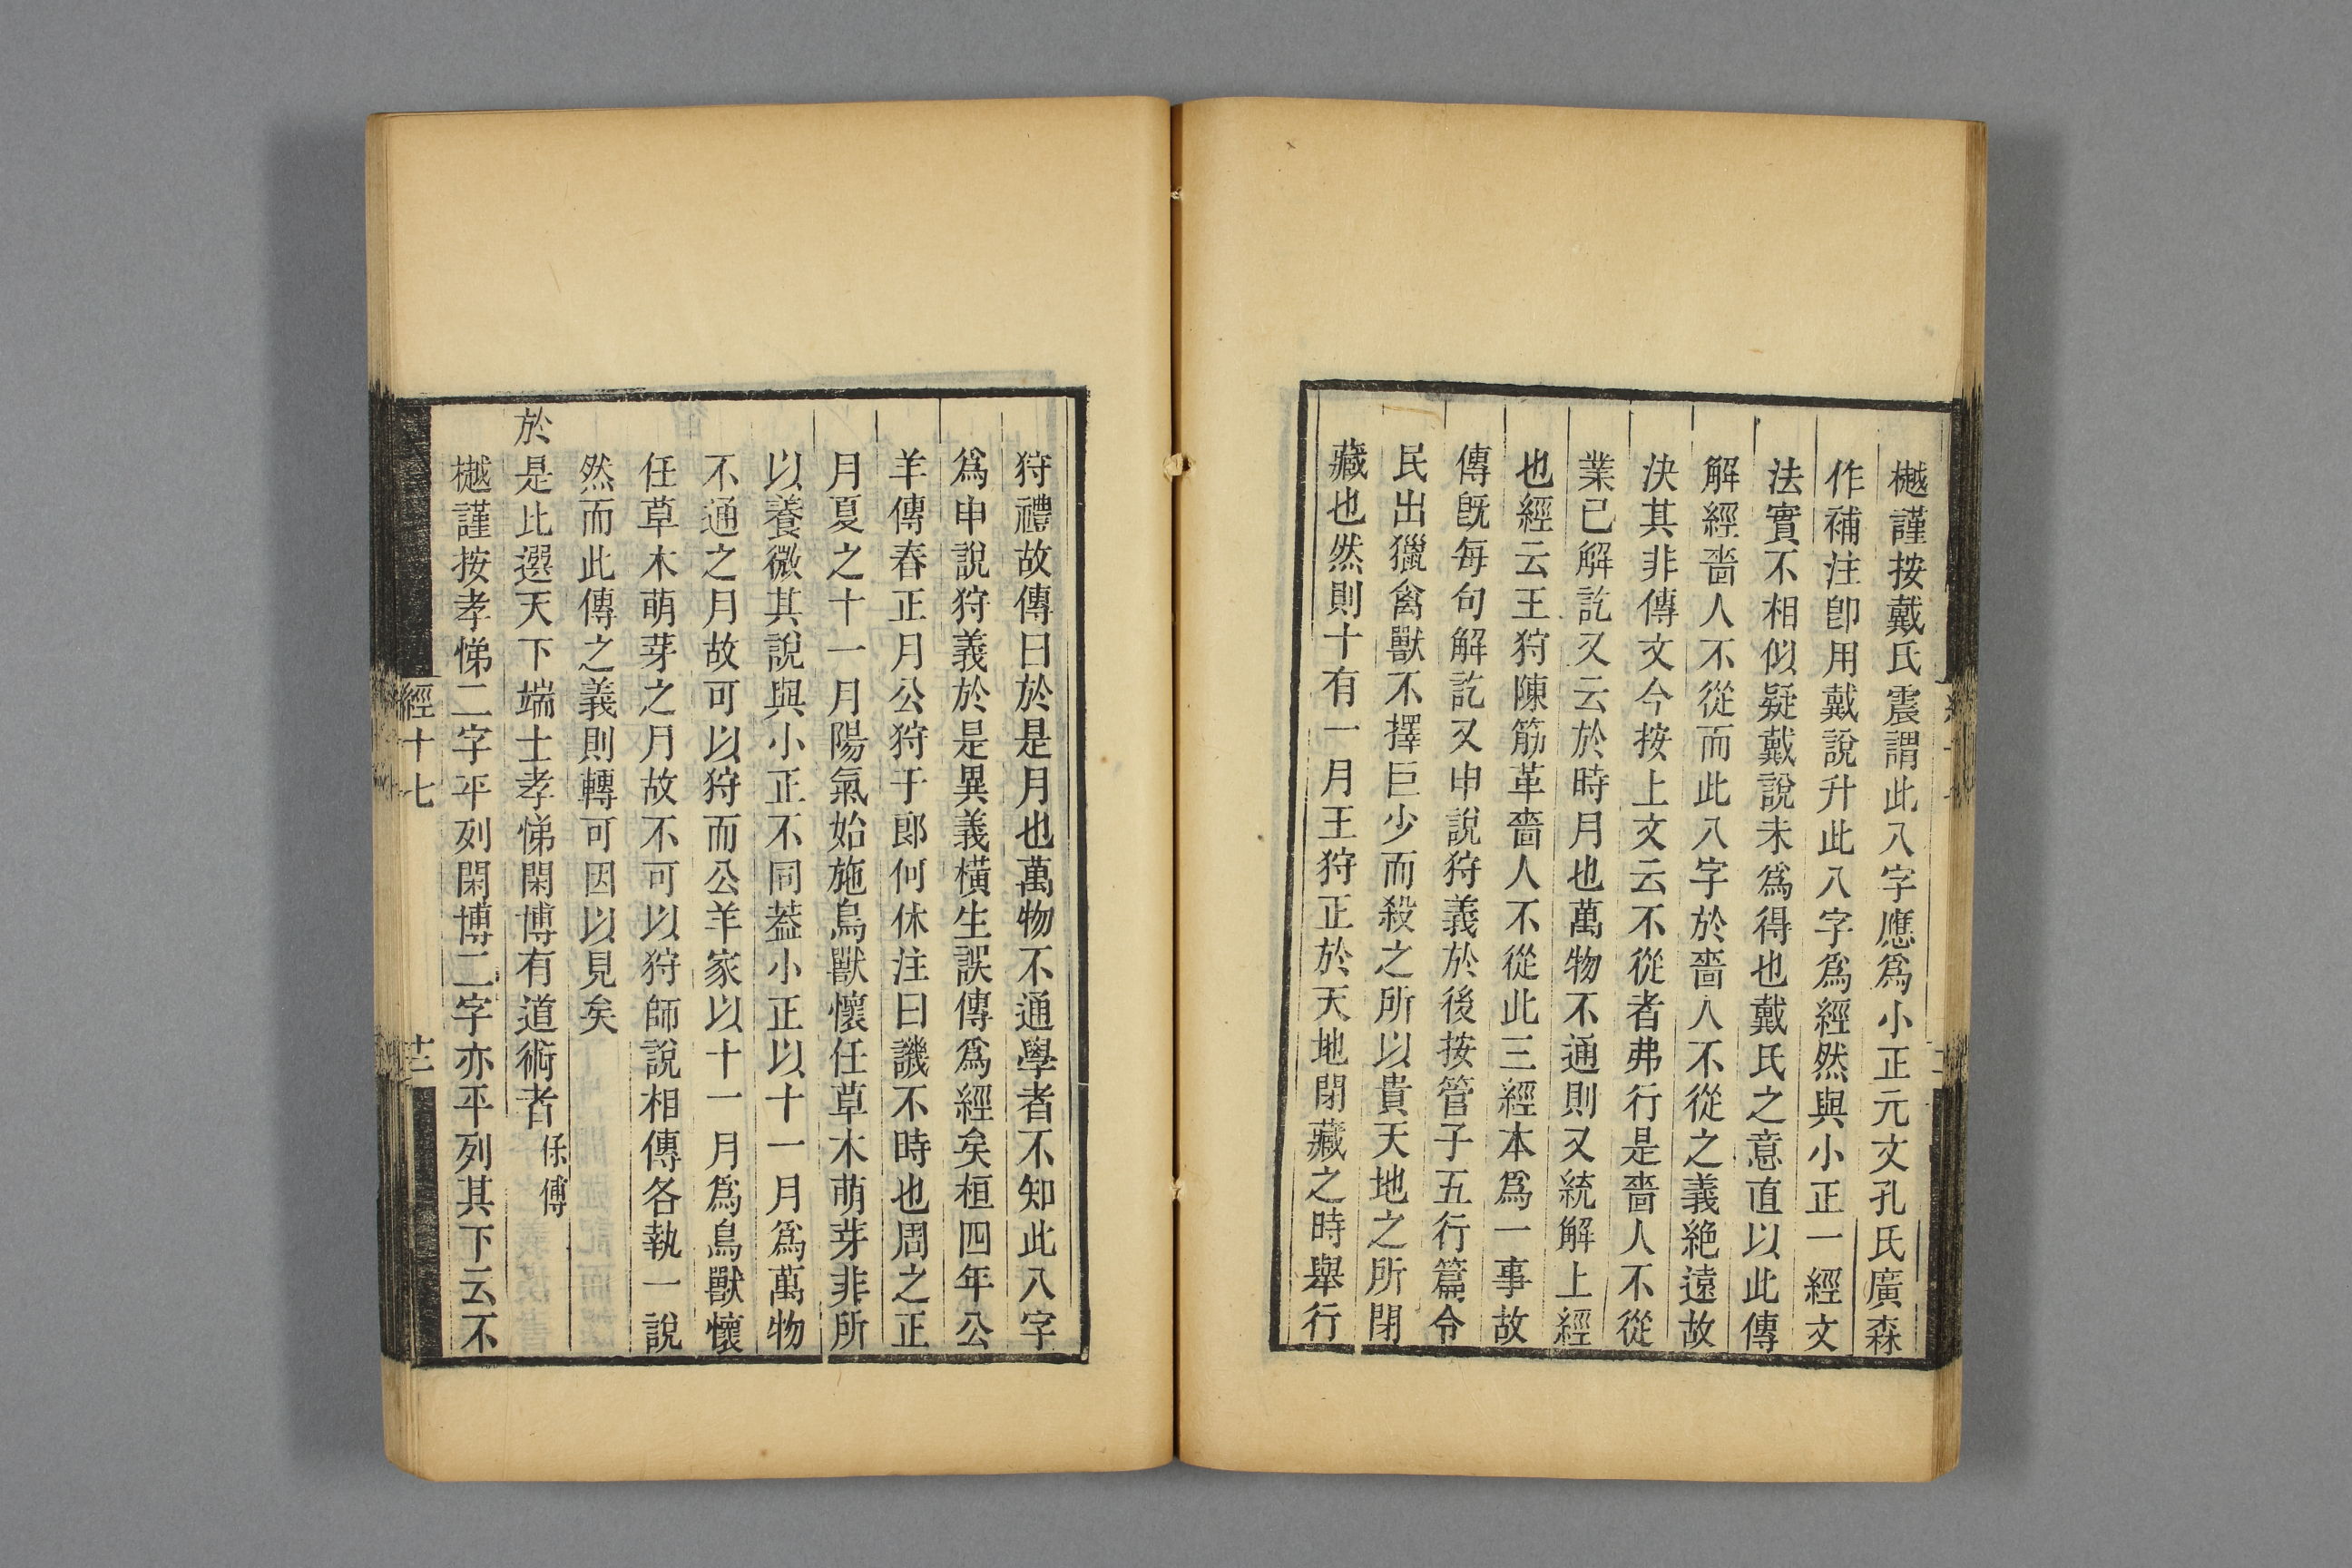 樾謹按戴氏震謂此八字應爲小正元文孔氏廣森
作補注卽用戴說升此八字爲經然與小正一經文
法實不相似疑戴說未爲得也戴氏之意直以此傳
解經嗇人不從而此八字於嗇人不從之義絶遠故
決其非傳文今按上文云不從者弗行是嗇人不從
業已解訖又云於時月也萬物不通則又統解上經
也經云王狩陳筋革嗇人不從此三經本爲一事故
傳旣每句解訖又申說狩義於後按管子五行篇令
民出獵禽獸不擇巨少而殺之所以貴天地之所閉
藏也然則十有一月王狩正於天地閉藏之時舉行
狩禮故傳曰於是月也萬物不通學者不知此八字
爲申說狩義於是異義橫生誤傳爲經矣桓四年公
羊傳春正月公狩于郎何休注曰譏不時也周之正
月夏之十一月陽氣始施鳥獸懷任草木萌芽非所
以養微其說與小正不同葢小正以十一月爲萬物
不通之月故可以狩而公羊家以十一月爲鳥獸懷
任草木萌芽之月故不可以狩師說相傳各執一說
然而此傳之義則轉可因以見矣
於是比選天下端士孝悌閑博有道術者 保傅
樾謹按孝悌二字平列閑博二字亦平列其下云不
經十七
十二